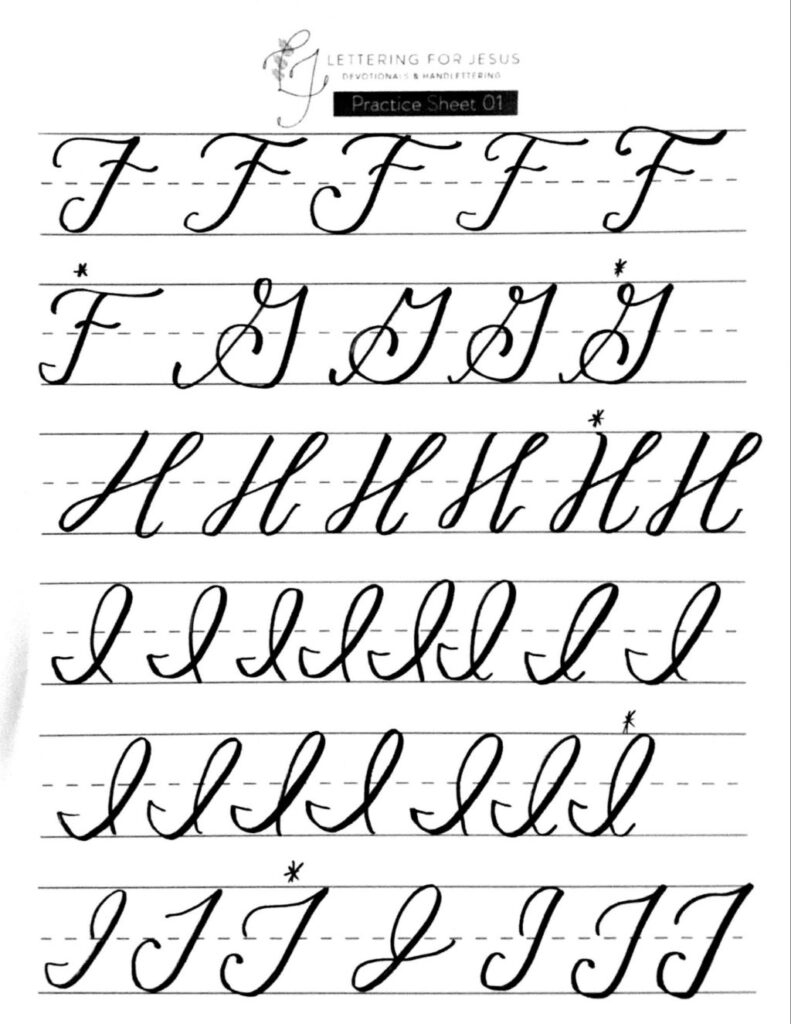 LJ
LETTERING FOR JESUS
DEVOTIONALS & HANDLETTERING
Practice Sheet 01
F F F F F
* *
F G G G G
*
H H H H H H
I I I I I I I I
*
I I I I I I I
*
J J J J J J J